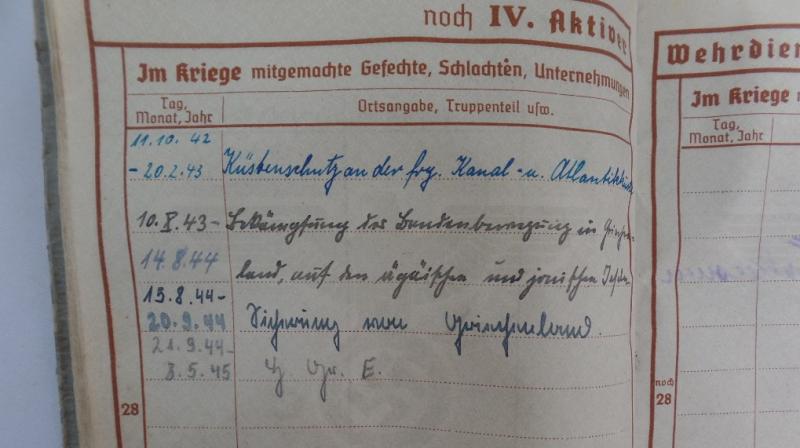 noch IV. Aktiver
Im Kriege mitgemachte Gefechte, Schlachten, Unternehmungen
Tag, Monat, Jahr
Ortsangabe, Truppenteil usw.
11.10.42
- 20.2.43 Küstenschutz an der frz. Kanal- u. Atlantikküste
10.X.43- Bekämpfung der Bandenbewegung in Griechen-
14.8.44 land, auf den ägäischen und jonischen Inseln
15.8.44-
20.9.44 Sicherung von Griechenland.
21.9.44-
8.5.45 H. Gr. E.
28
Wehrdien
Im Kriege
Tag, Monat, Jahr
noch 28